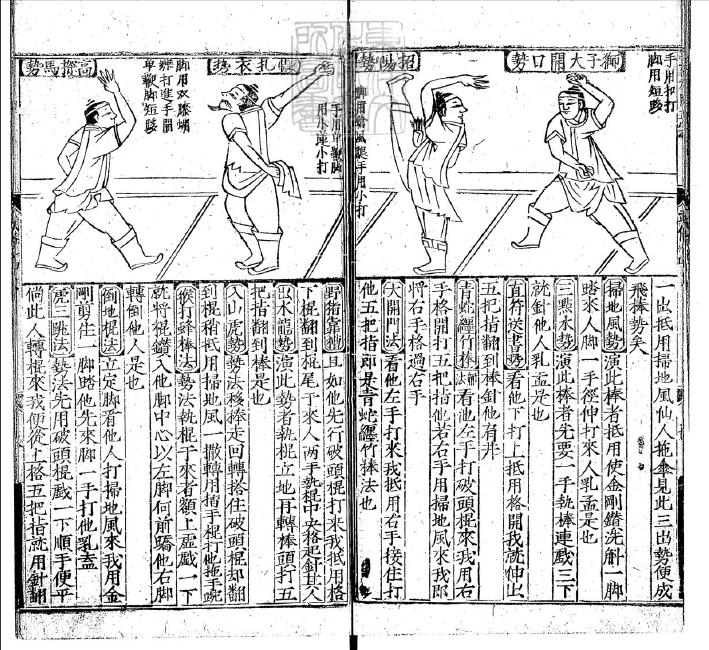 手用拘打
脚用短路
獅子大開口勢
招陽勢
一出抵用掃地風仙人拖傘見此三出勢便成
飛捧勢矣
掃地風勢演此棒者抵用使金剛鑽洗斛一脚
踏來人脚一手徑伸打來人乳盂是也
三燕水勢演此棒者先要一手執棒連戲三下
就針他人乳盂是也
直符送書勢看他下打上抵用格開我就伸出
五把指翻到棒針他肩井
青蛇纒竹棒法看他左手打破頭棍來我用右
手格開打五把指他若右手用掃地風來我即
將右手格過右手
大開門法看他左手打來我抵用右手接住打
他五把指即是青蛇纒竹棒法也
手用單鞭脚
用小庫小打
脚用双滕蝴
蝶打進手開
單鞭脚短路
高探馬勢
野猪靠樁且如他先行破頭棍打來我抵用格
下棍翻到棍尾于來人两手執棍中央格起針其人
出水龍勢演此勢者執棍立地再轉棒頭打五
把指翻到棒是也
入山虎勢勢法移棒走回轉搭住破頭棍却翻
到棍稍抵用掃地風一撒轉用箝手棍打他拖手踠
猴打蜂棒法勢法執棍于來者額上虚戲一下
就將棍鑚入他脚中心以左脚何前蹻他右脚
轉倒他人是也
倒地棍法立定脚看他人打掃地風來我用金
剛剪住一脚踏他先來脚一手打他乳盂
虎三跳法勢法先用破頭棍戲一下順手便平
倘此人轉棍來我便從上格五把指就用針翻